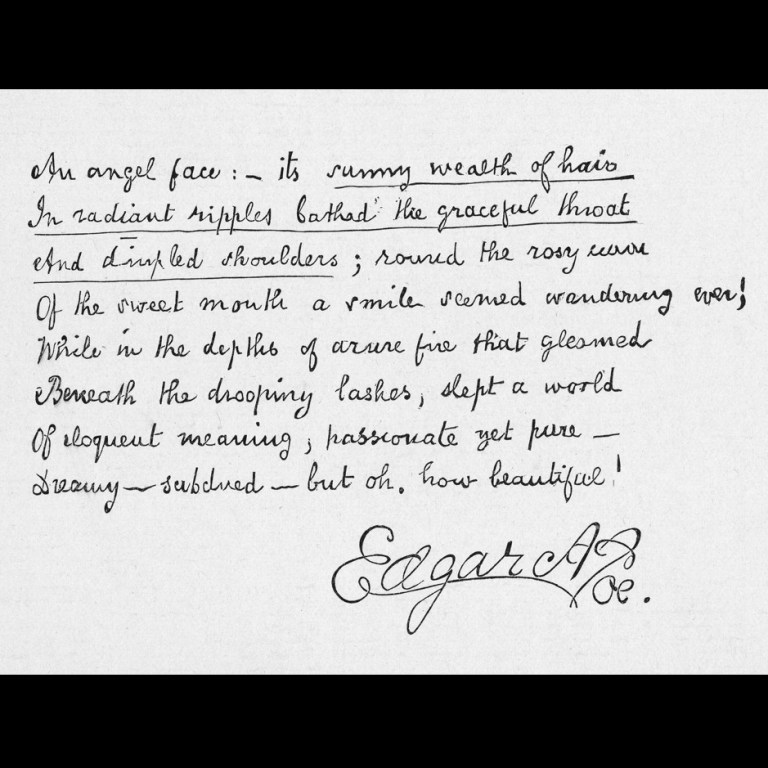 An angel face : – its sunny wealth of hair
In radiant ripples bathed the graceful throat
And dimpled shoulders ; round the rosy curve
Of the sweet mouth a smile seemed wandering ever ;
While in the depths of azure fire that gleamed
Beneath the drooping lashes, slept a world
Of eloquent meaning , passionate yet pure –
Dreamy – subdued – but oh. how beautiful !
Edgar A Poe.